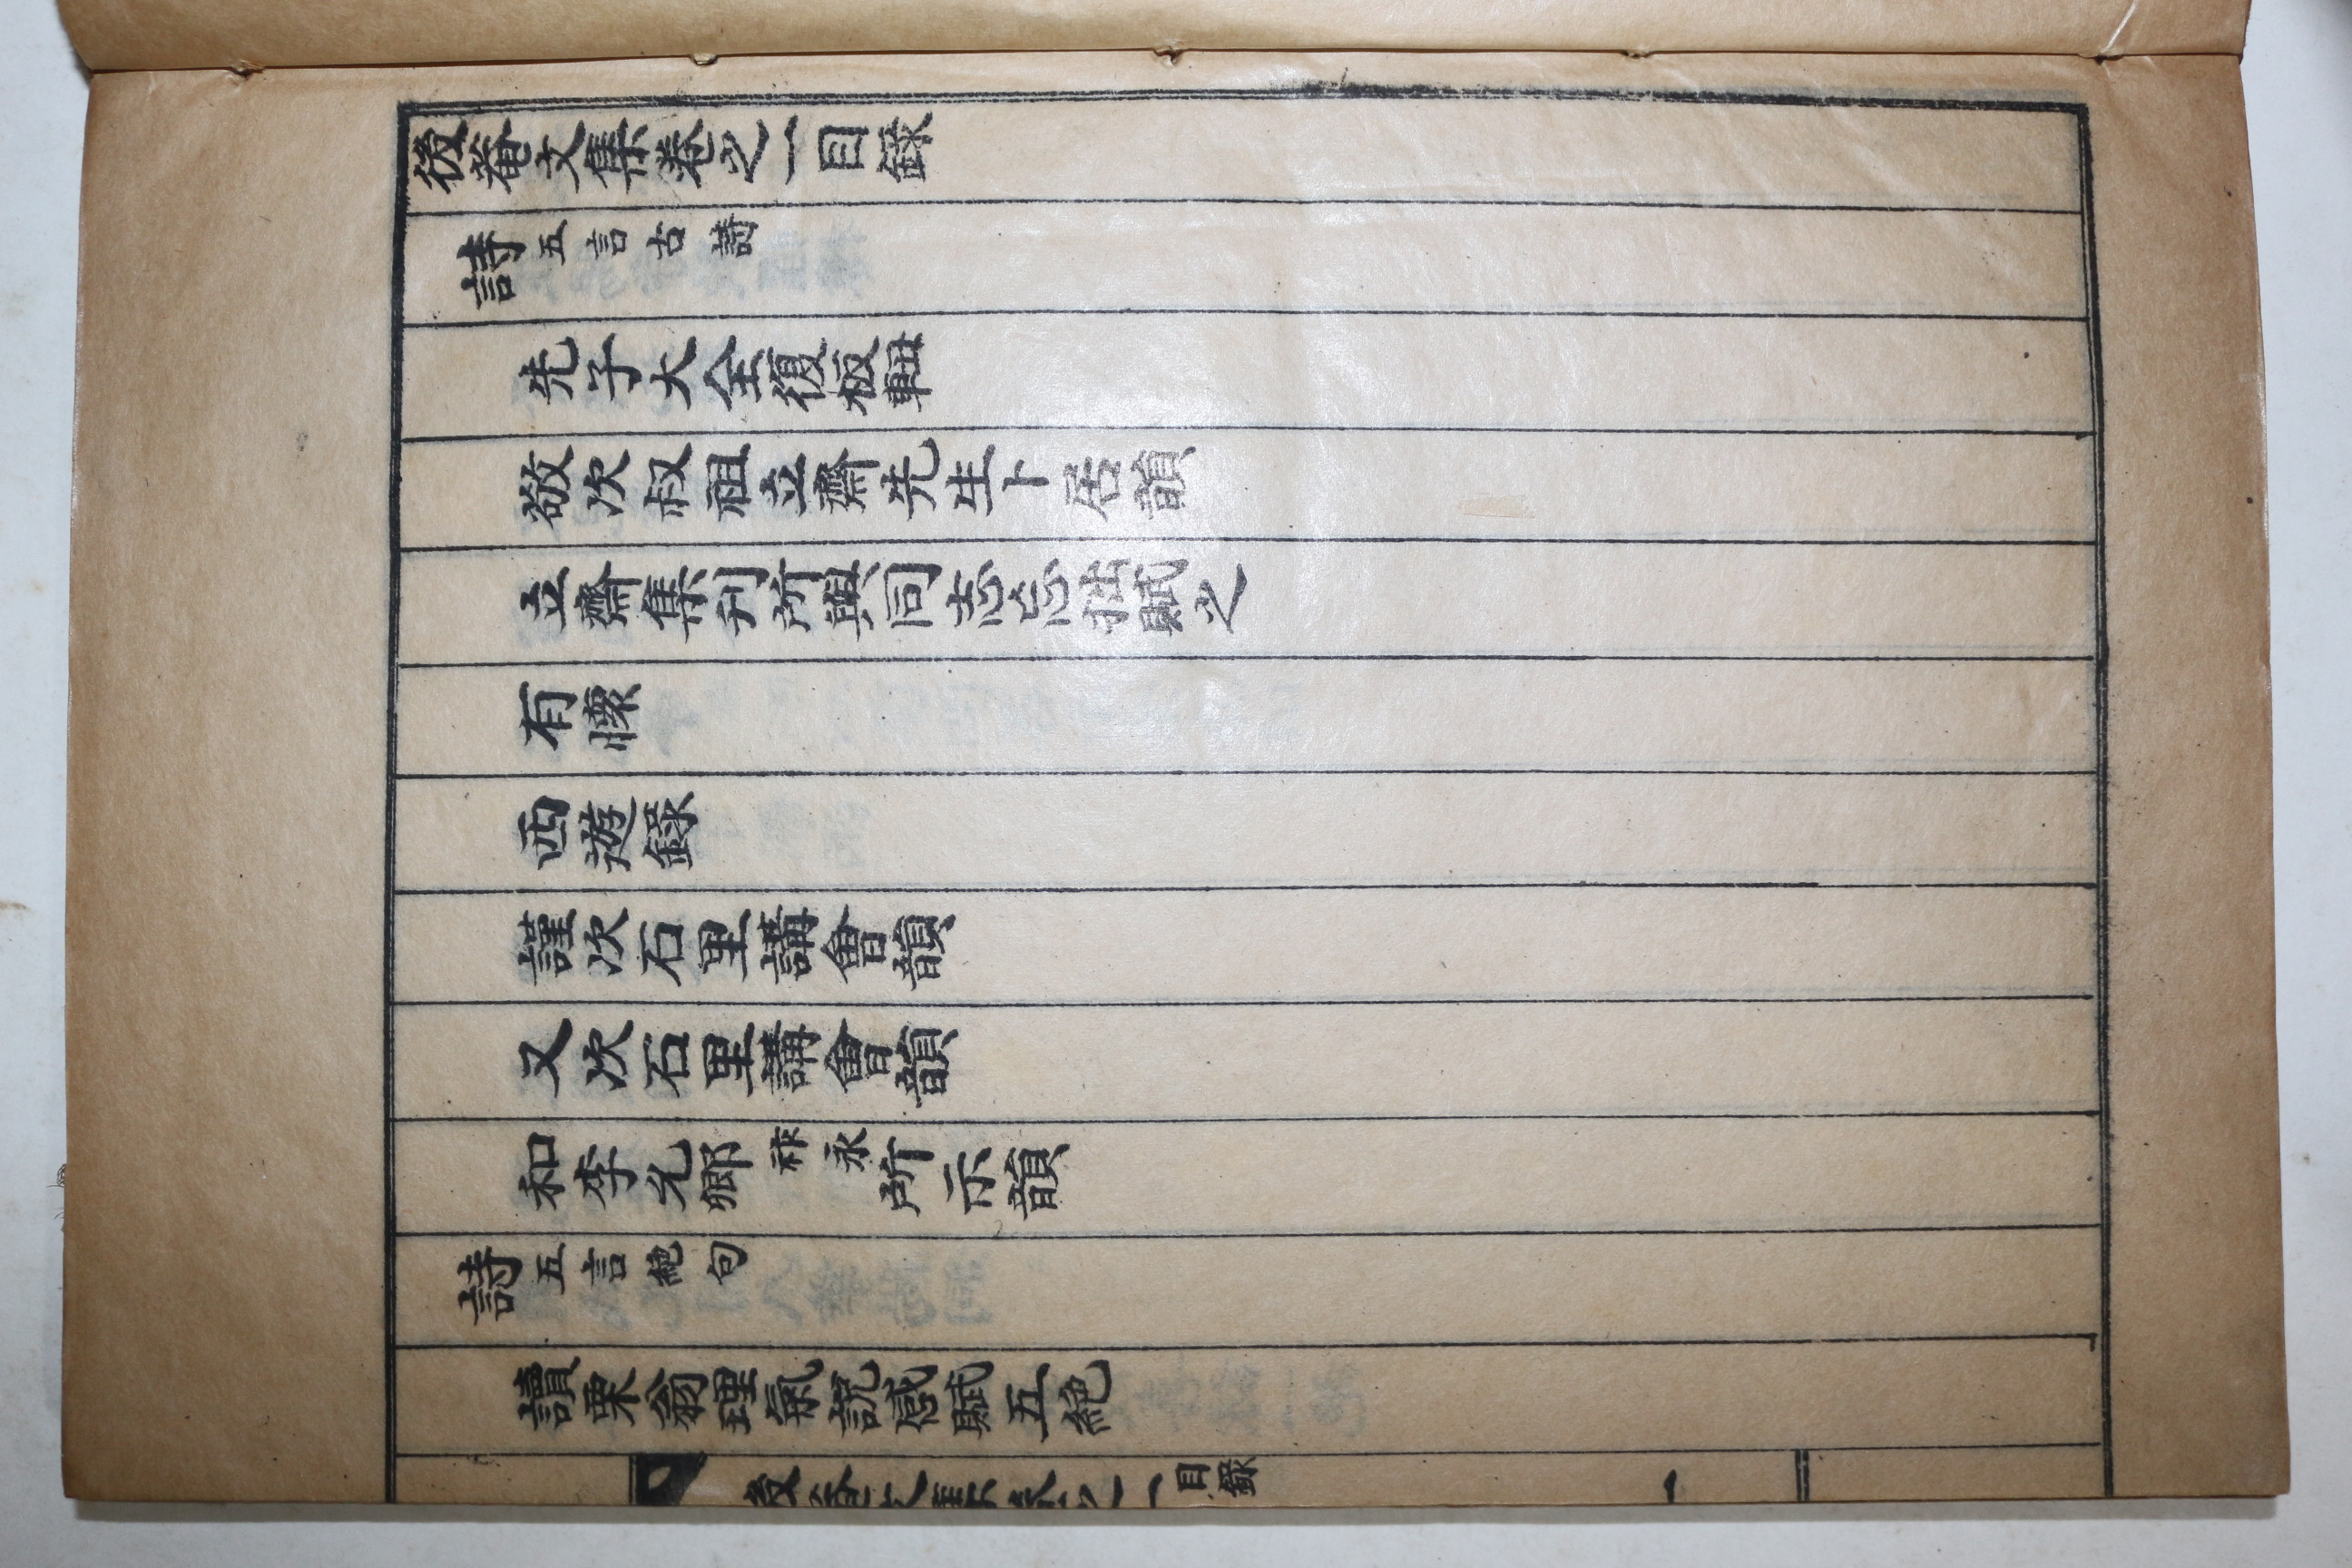 後菴文集卷之一目錄
詩 五言古詩
先子大全復板韻
敬次叔祖立齋先生卜居韻
立齋集刊所與同志忘拙賦之
有懷
西遊錄
謹次石里講會韻
又次石里講會韻
和李允卿 祚永 所示韻
詩 五言絶句
讀栗翁理氣說感賦五絶
後菴文集卷之一 目錄 一